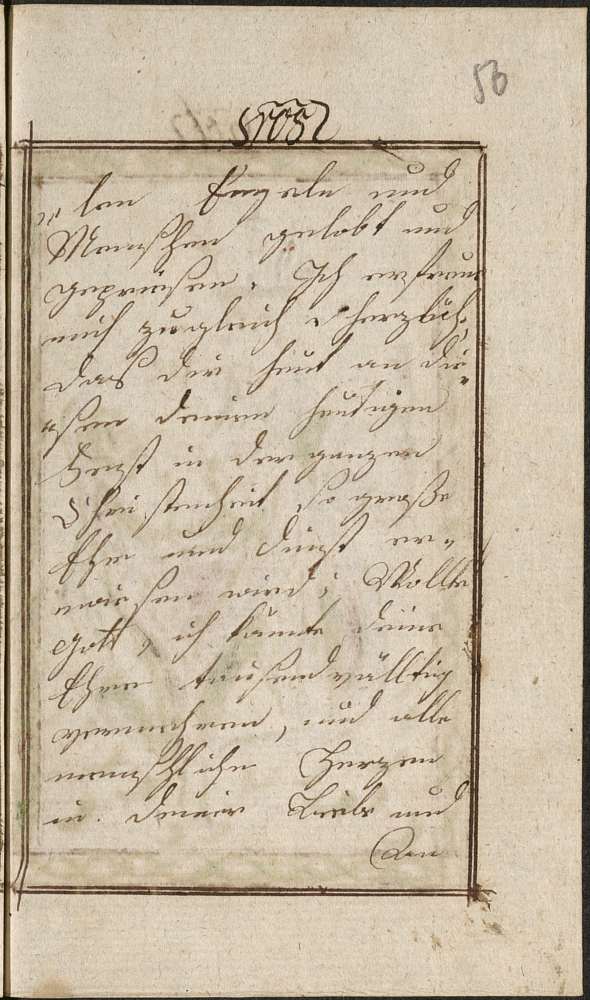 56
105
"len Engeln und
Menschen gelobt und
gepriesen. Ich erfreue
mich zugleich herzlich,
das dir heut an die-
"sem deinem heutigen
Fest in der ganzen
Christenheit so große
Ehr und Dinst er-
wiesen wird; Wollte
Gott, ich könnte deine
Ehre tausendvälltig
vermehren, und alle
menschliche Herzen
in deiner Liebe und
An